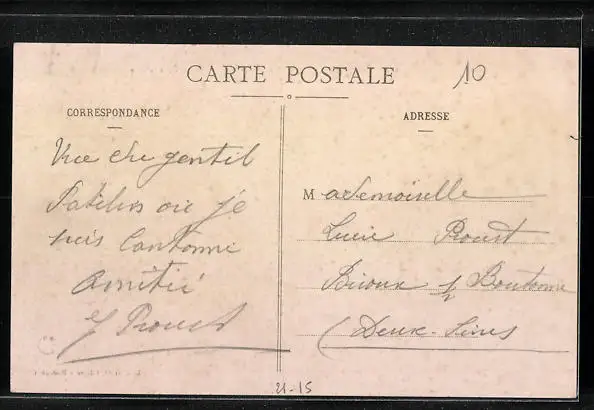 CARTE POSTALE
10
CORRESPONDANCE
ADRESSE
Vue du gentil
Patelin où je
suis Cantonné
Amitié
Proust
Mademoiselle
Lucie Proust
Brioux s/ Boutonne
(Deux-Sèvres
21-15